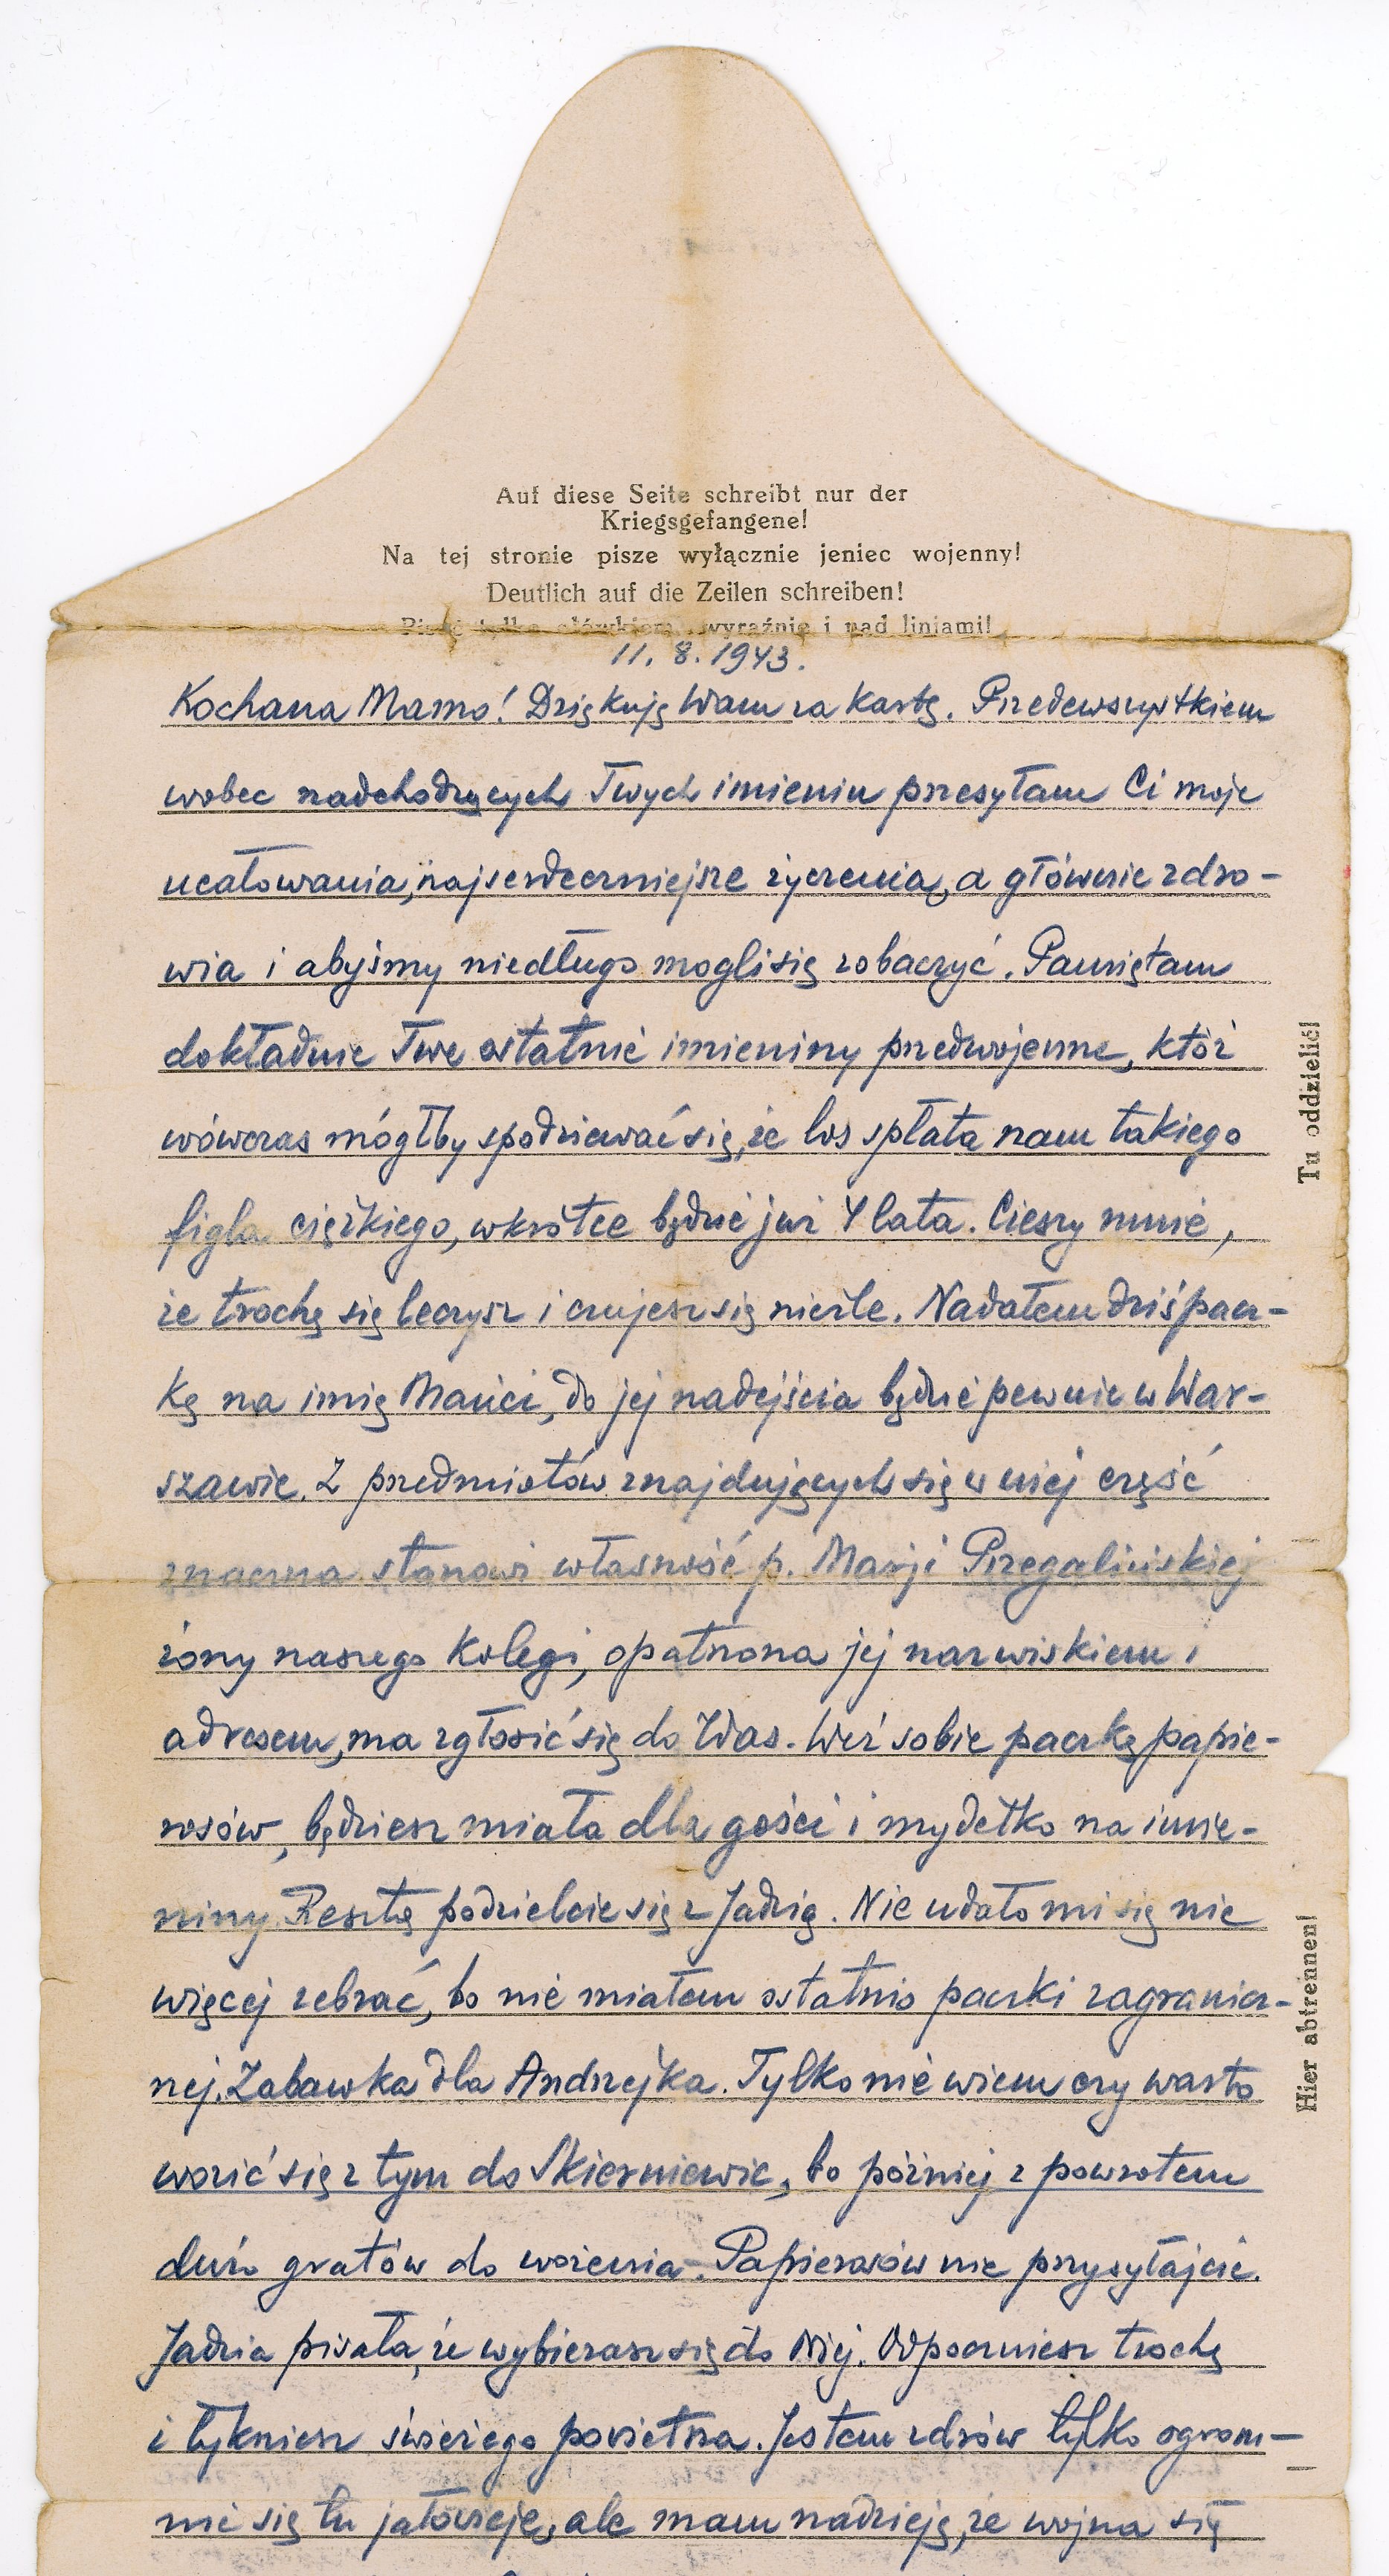 Auf diese Seite schreibt nur der
Kriegsgefangene!
Na tej stronie pisze wyłącznie jeniec wojenny!
Deutlich auf die Zeilen schreiben!
Pisać tylko ołówkiem, wyraźnie i nad liniami!
11. 8. 1943.
Kochana Mamo! Dziękuję Wam za kartę. Przedewszystkiem
wobec nadchodzących Twych imienin przesyłam Ci moje
ucałowania, najserdeczniejsze życzenia, a głównie zdro-
wia i abyśmy niedługo mogli się zobaczyć. Pamiętam
dokładnie Twe ostatnie imieniny przedwojenne, któż
wówczas mógłby spodziewać się, że los spłata nam takiego
figla ciężkiego, wkrótce będzie już 4 lata. Cieszy mnie,
że trochę się leczysz i czujesz się nieźle. Nadałem dziś pacz-
kę na imię Mańci, do jej nadejścia będzie pewnie w War-
szawie. Z przedmiotów znajdujących się w niej część
znaczna stanowi własność p. Marji Przegalińskiej
żony naszego kolegi, opatrzona jej nazwiskiem i
adresem, ma zgłosić się do Was. Weź sobie paczkę papie-
rosów, będziesz miała dla gości i mydełko na imie-
niny. Resztę podzielcie się z Jadzią. Nie udało mi się nic
więcej zebrać, bo nie miałem ostatnio paczki zagranicz-
nej. Zabawka dla Andrzejka. Tylko nie wiem czy warto
wozić się z tym do Skierniewic, bo później z powrotem
dużo gratów do wożenia. Papierosów nie przysyłajcie.
Jadzia pisała, że wybierasz się do Niej. Odpoczniesz trochę
i łykniesz świeżego powietrza. Jestem zdrów tylko ogrom-
nie się tu jałowieje, ale mam nadzieję, że wojna się
Tu oddzielić!
Hier abtrennen!